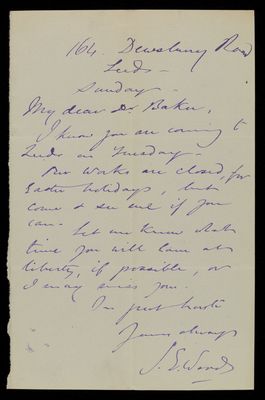 164. Dewsbury Road
Leeds -
Sunday -
My dear Dr. Baker,
I know you are coming to
Leeds on Tuesday -
Our works are closed, for
Easter holidays, but
come & see me if you
can - Let me know what
time you will be at
liberty, if possible, or
I may miss you.
In great haste
Yours always